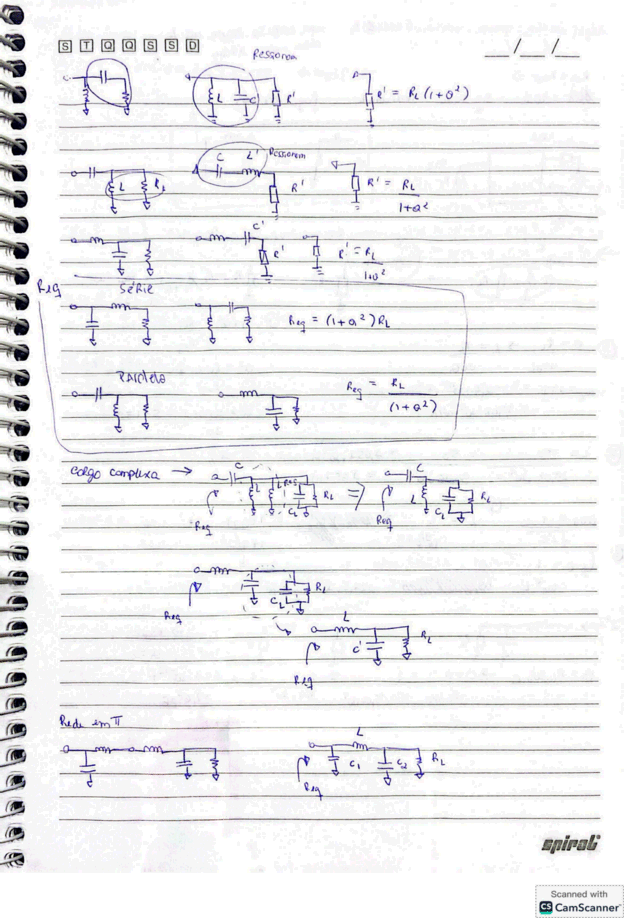 S T Q Q S S D
__/__/__
Ressoram
L C R'
R' = RL (1+Q²)
C L' Ressoram
L RL R' R' = RL / 1+Q²
C'
R' R' = RL / 1+Q²
Req
Série
Req = (1+Q²) RL
Paralelo
Req = RL / (1+Q²)
Carga complexa → C L L CL RL ⇒ C L CL RL
Req Req
CL RL
Req
L
C' RL
Req
Rede em π
L
C1 C2 RL
Req
spiral
Scanned with
CS CamScanner